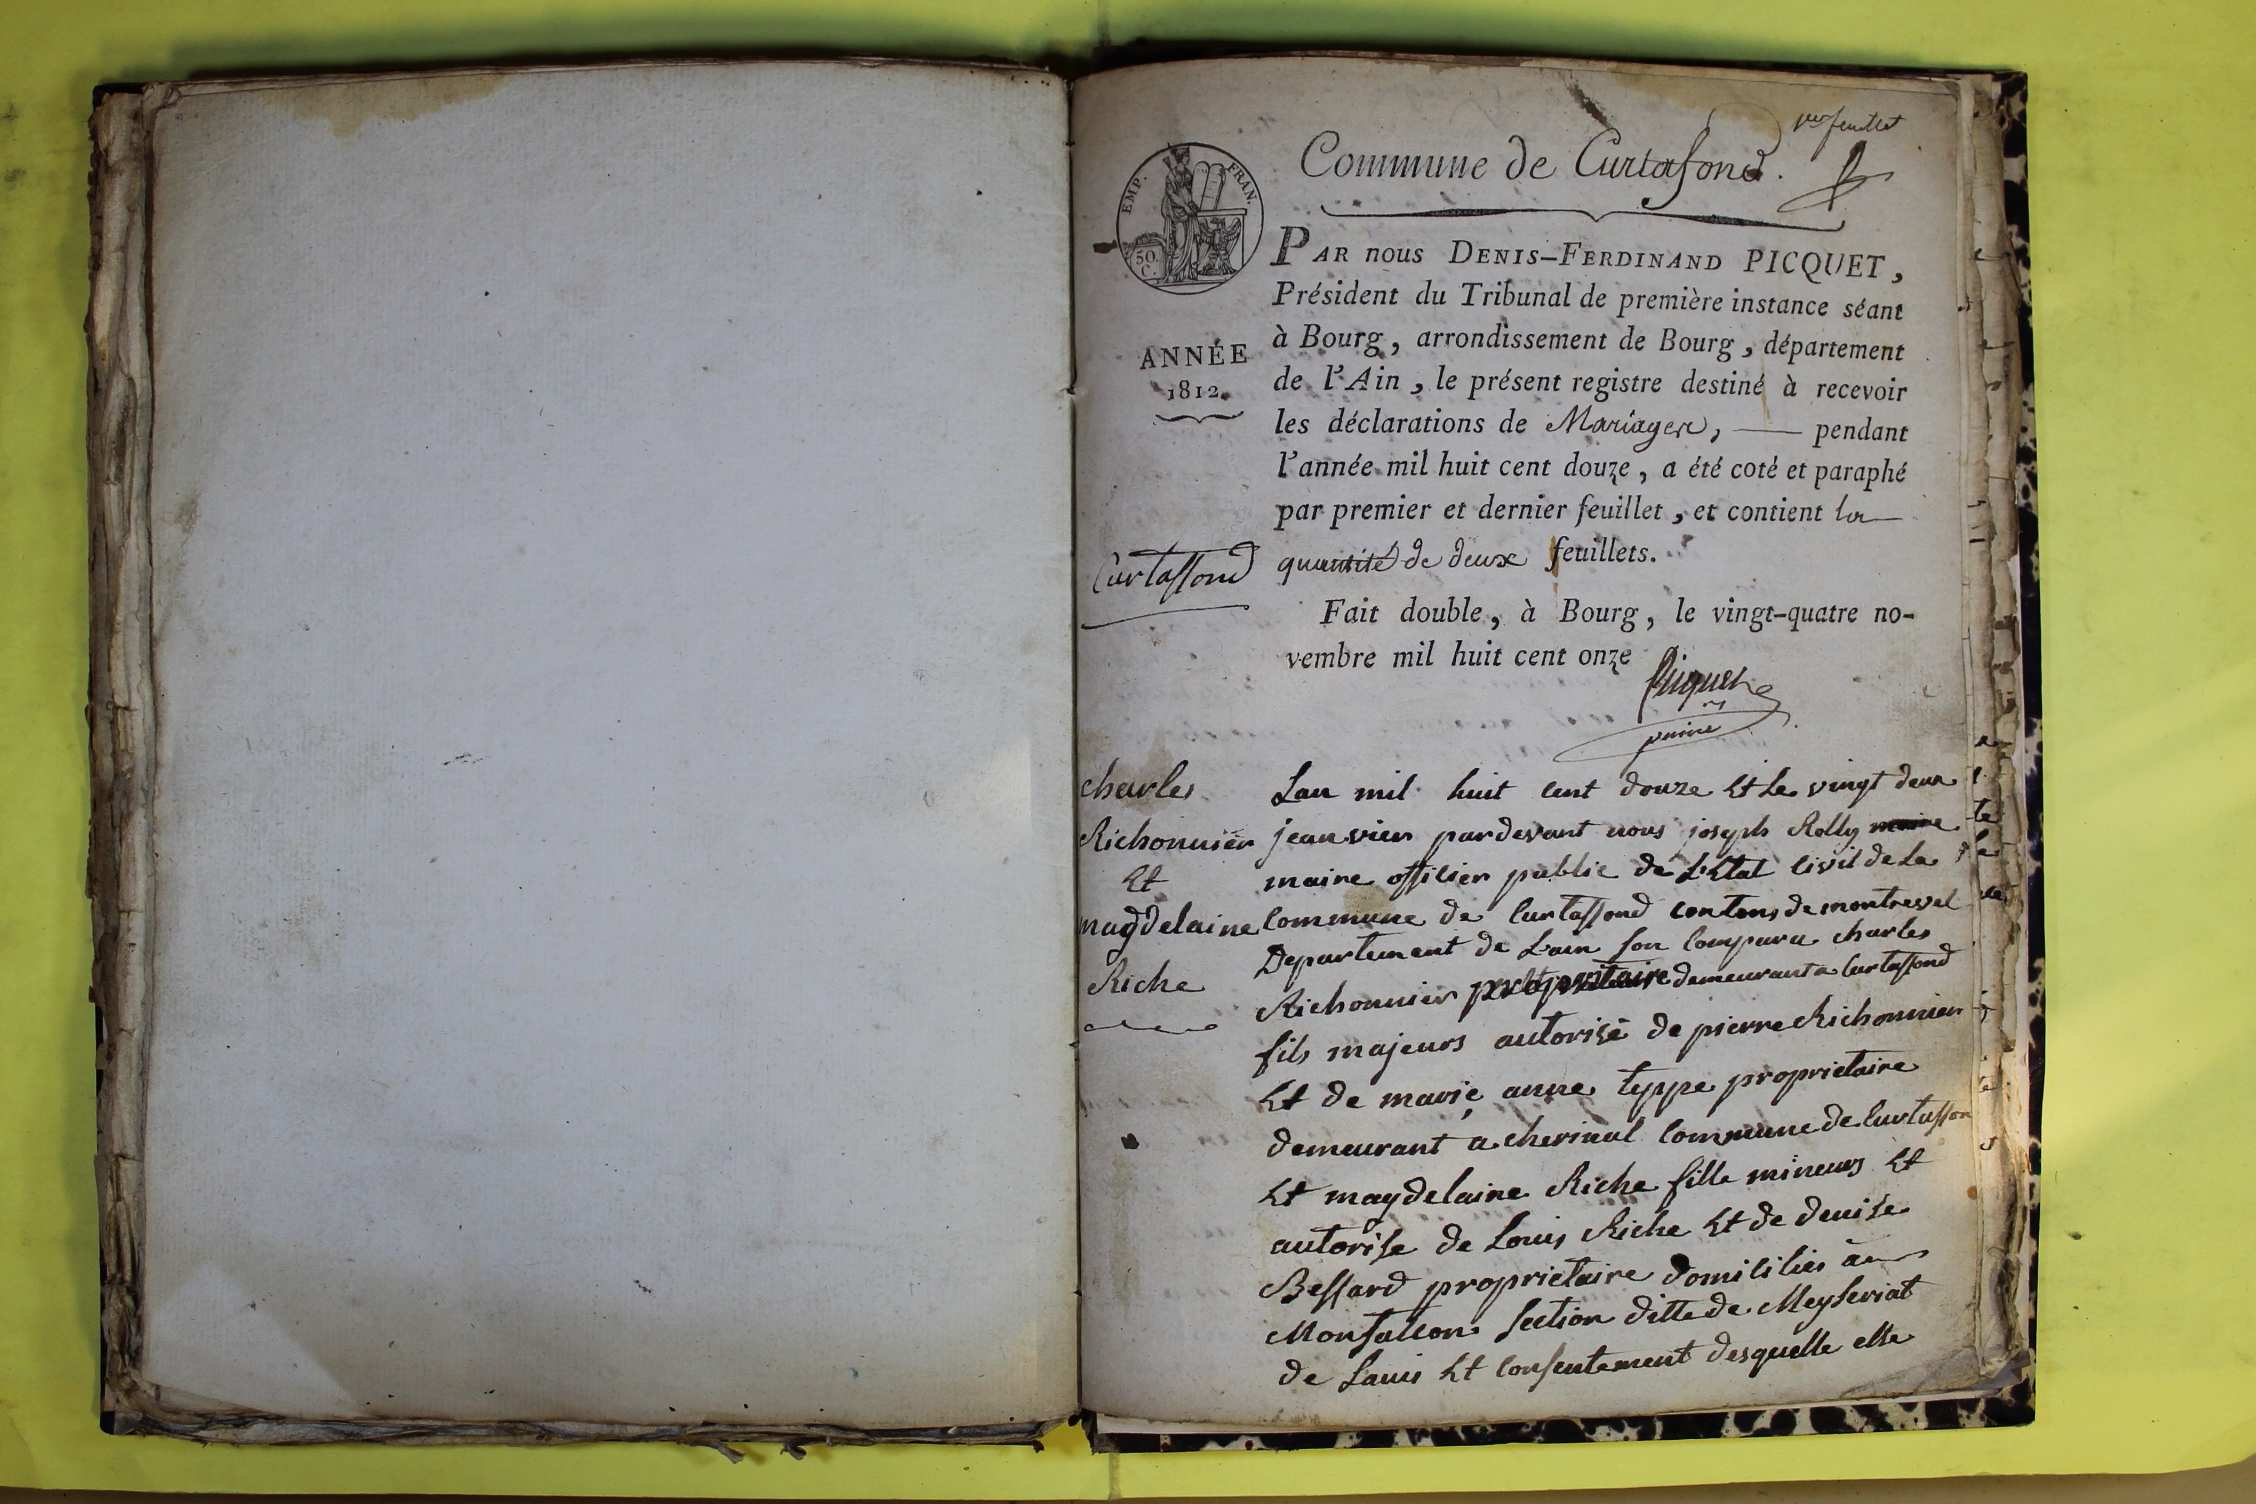 1er feuillet
Commune de Curtafond.
EMP. FRAN.
50.
C.
PAR nous DENIS-FERDINAND PICQUET,
Président du Tribunal de première instance séant
à Bourg, arrondissement de Bourg, département
de l'Ain, le présent registre destiné à recevoir
les déclarations de Mariages, — pendant
l'année mil huit cent douze, a été coté et paraphé
par premier et dernier feuillet, et contient la
quantité de deux feuillets.
Fait double, à Bourg, le vingt-quatre no-
vembre mil huit cent onze
Picquet
ANNÉE
1812.
Curtaffond
charles
Richonnier
Et
magdelaine
Riche
Lan mil huit cent douze Et le vingt deux
jeanvier pardevant nous joseph Rolly maire
maire officier public de L'Etat civil de la
commune de Curtaffond contons de montrevel
Departement de L'ain son compara charles
Richonnier propritaire demeurant a Curtaffond
fils majeurs autorisé de pierre Richonnier
Et de marie anne typpe proprietaire
demeurant a cherinal commune de Curtaffon
Et magdelaine Riche fille mineurs Et
autorise de Louis Riche Et de denise
Bessard proprietaire domicilies à
Monfalcon section ditte de Meyseriat
de Lavis Et consentement desquelle elle